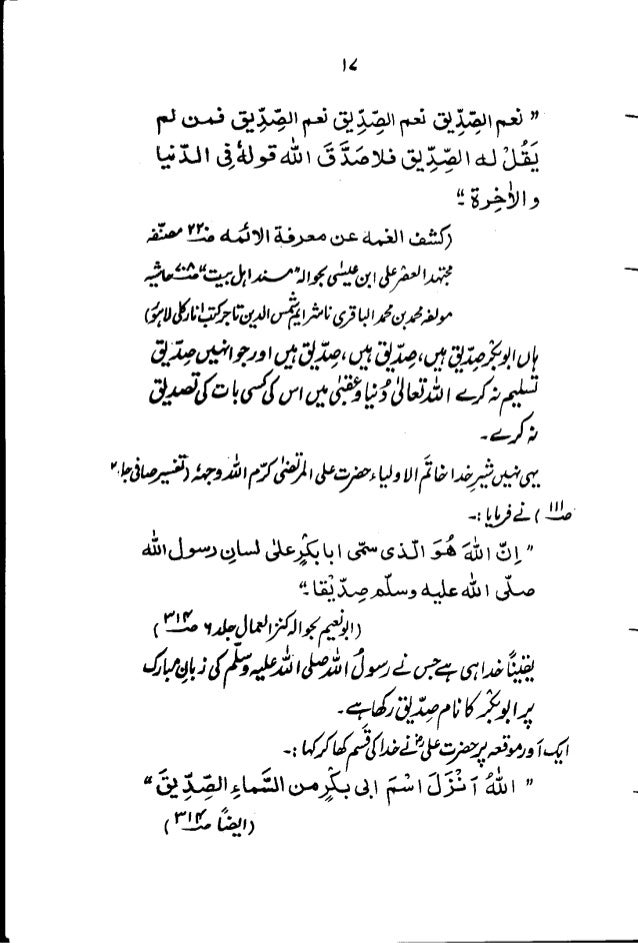 ۱۷
" نعم الصِّدِّیق نعم الصِّدِّیق نعم الصِّدِّیق فمن لم
یَقُلْ له الصِّدِّیق فلا صَدَّقَ الله قولهٗ فِی الدّنیا
والاٰخِرة ۔"
(کشف الغمه عن معرفة الائمه ص۲۲۰ مصنّفه
مجتہد العصر علی ابن عیسٰی بحوالہ "مسند اہل بیت" ص۷۰۸ حاشیہ
مولفہ محمد بن محمد الباقری ناشر ایم شمس الدین تاجر کتب انارکلی لاہور)
ہاں ابوبکرؓ صدّیق ہیں، صدّیق ہیں، صدّیق ہیں اور جو انہیں صدّیق
تسلیم نہ کرے اللہ تعالیٰ دُنیا و عقبیٰ میں اس کی کسی بات کی تصدیق
نہ کرے۔
یہی نہیں شیرِ خدا خاتَم الاولیاء حضرت علی المرتضٰی کرّم اللہ وجہہٗ (تفسیر صافی ج۲
ص۱۱۱) نے فرمایا :۔
" اِنَّ اللهَ هُوَ الّذی سمّی ابابکرٍؓ علیٰ لسانِ رسول الله
صلّی الله علیه وسلّم صِدِّیْقا۔"
(ابو نعیم بحوالہ کنز العمال جلد ۶ ص۳۱۴)
یقیناً خدا ہی ہے جس نے رسولُ اللہ صلی اللہ علیہ وسلّم کی زبانِ مبارک
پر ابوبکرؓ کا نام صدّیق رکھا ہے۔
ایک اور موقعہ پر حضرت علیؓ نے خدا کی قَسم کھا کر کہا :۔
" اللهُ اَنْزَلَ اسْمَ ابی بکرٍؓ من السَّماءِ الصِّدِّیقَ "
(ایضاً ص۳۱۴)